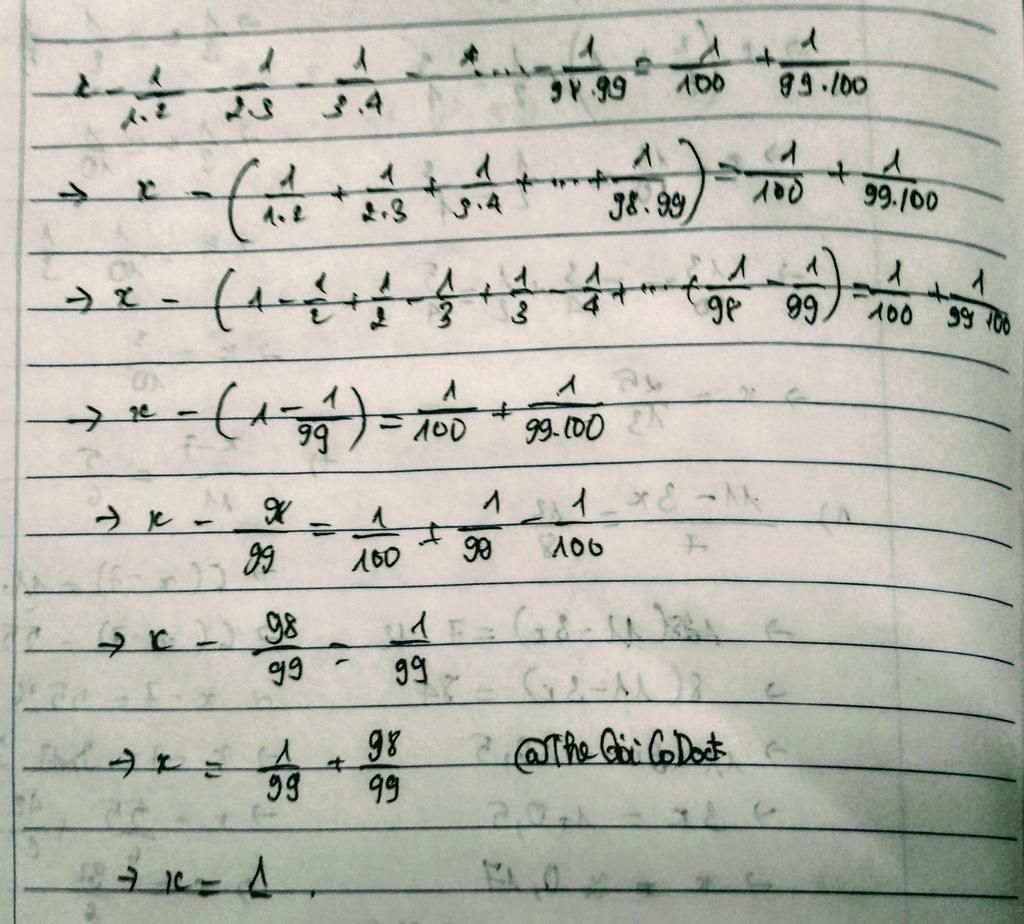 x - 1/1.2 - 1/2.3 - 1/3.4 - .... - 1/98.99 = 1/100 + 1/99.100
→ x - (1/1.2 + 1/2.3 + 1/3.4 + ... + 1/98.99) = 1/100 + 1/99.100
→ x - (1 - 1/2 + 1/2 - 1/3 + 1/3 - 1/4 + ... + 1/98 - 1/99) = 1/100 + 1/99.100
→ x - (1 - 1/99) = 1/100 + 1/99.100
→ x - 98/99 = 1/100 + 1/99 - 1/100
→ x - 98/99 = 1/99
→ x = 1/99 + 98/99 @The
→ x = 1.